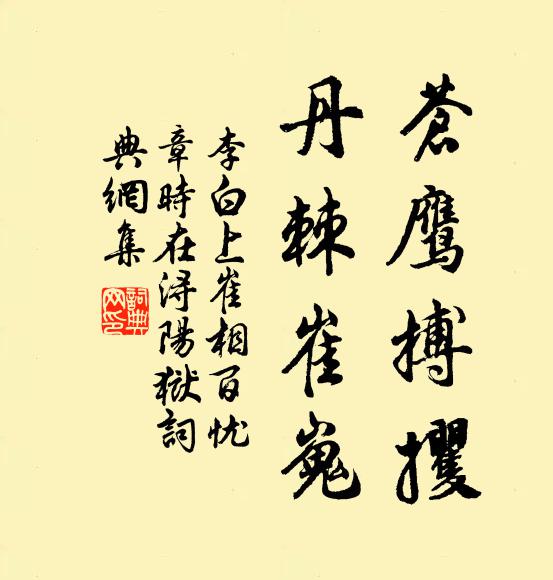 蒼鹰搏攫
丹棘崔嵬
李白上崔相百忧
章時在浔陽獄詞
典網集
詞典
网印